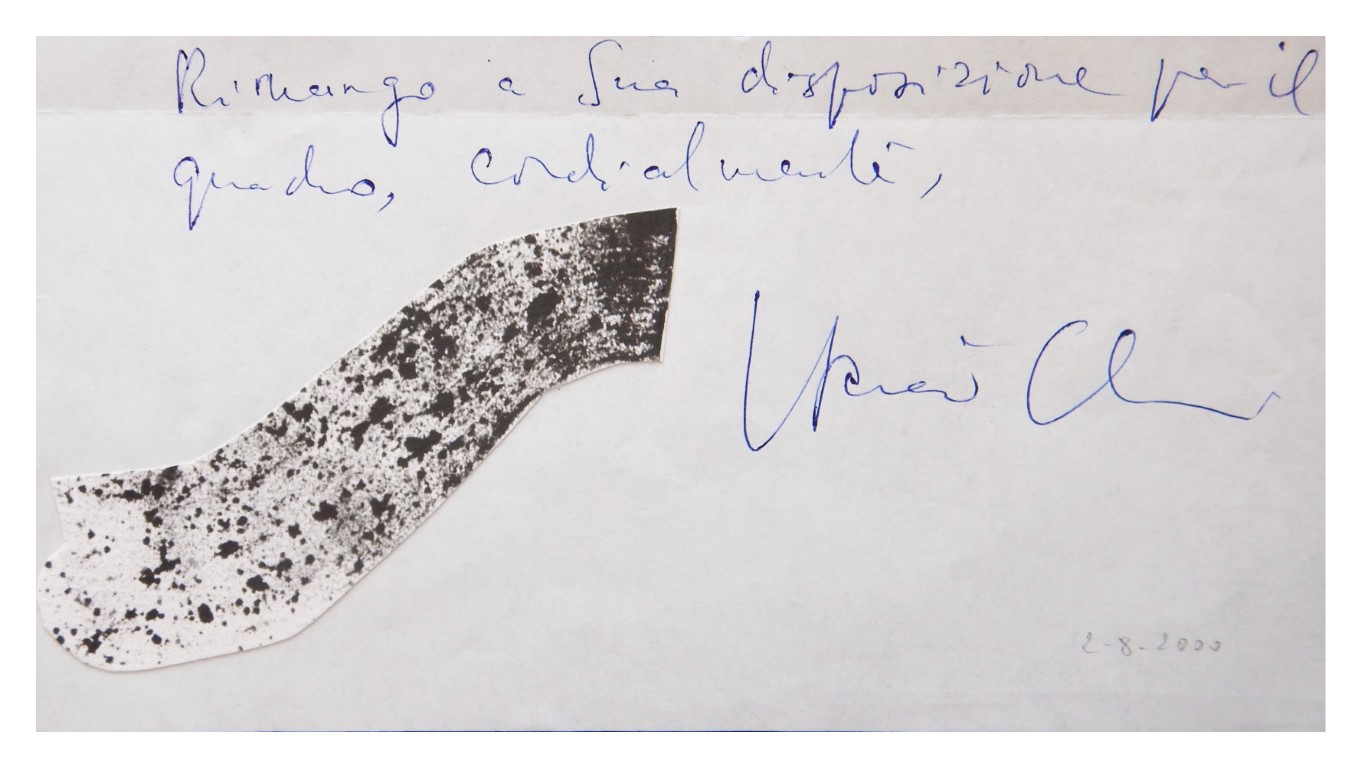 Rimango a Sua disposizione per il
quadro, cordialmente,
2-8-2000